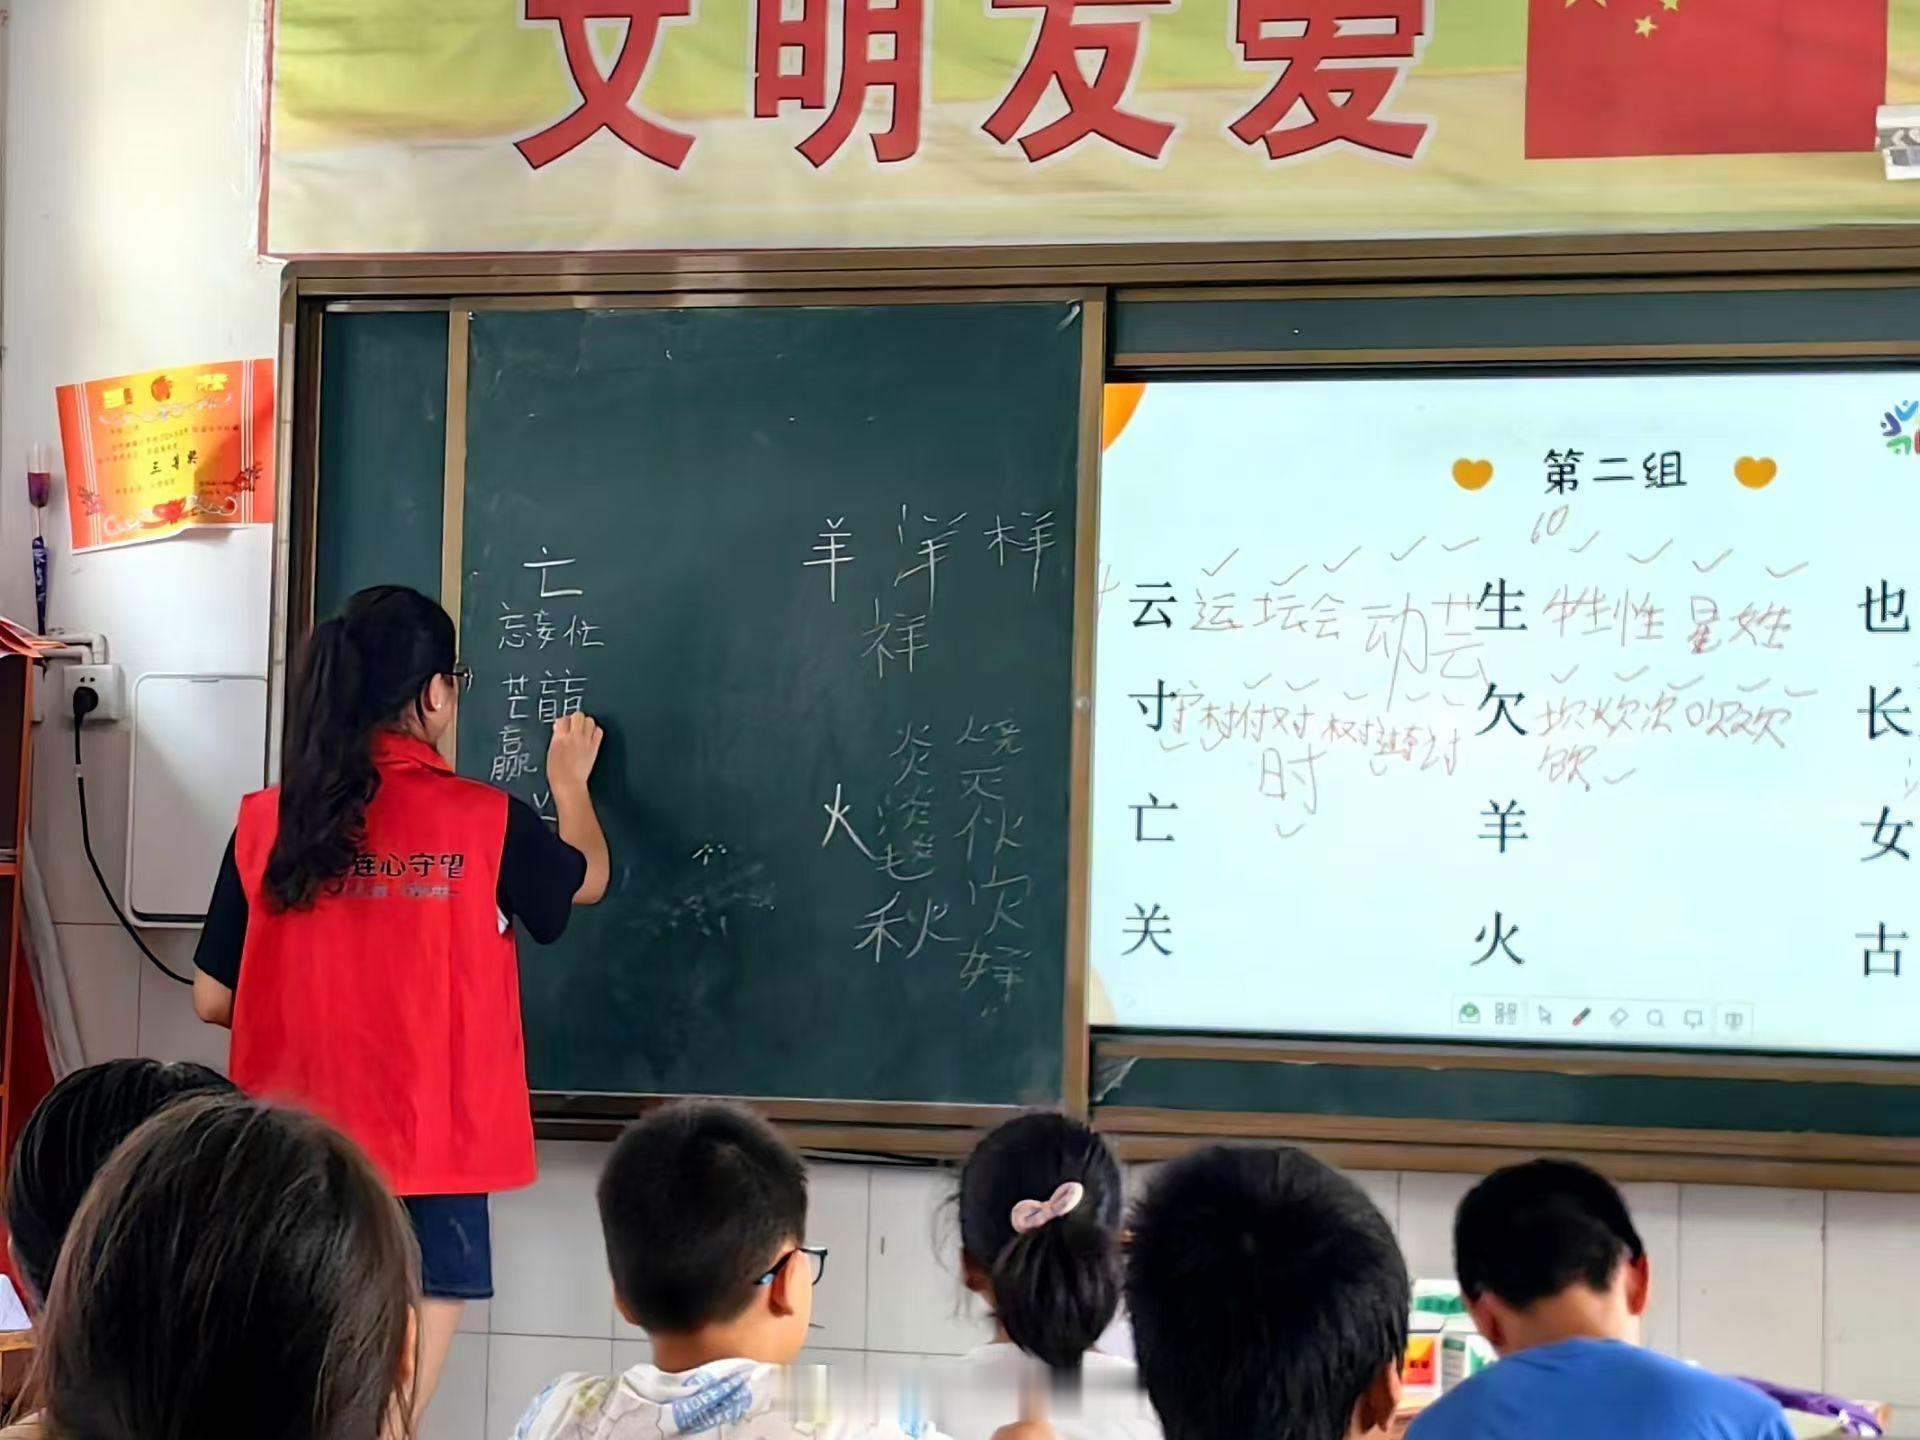 文明友爱
三等奖
第二组
10
云 运 坛 会 动 芸
生 牲 性 星 姓
也
寸 守 村 付 对 树 过 讨
时
欠 坎 炊 次 吹 欢
欲
长
亡
羊
女
关
火
古
亡
忘 妄 忙
芒
赢
羊 洋 样
祥
火
炎
淡
毯
秋
烧
灭
伙
连心守望